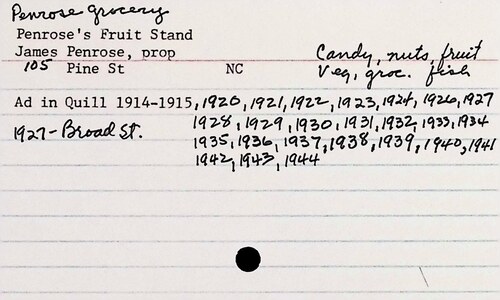 Penrose grocery
Penrose's Fruit Stand
James Penrose, prop
Candy, nuts, fruit
105 Pine St NC Veg, groc. fish
Ad in Quill 1914-1915, 1920, 1921, 1922, 1923, 1924, 1926, 1927
1927 - Broad St. 1928, 1929, 1930, 1931, 1932, 1933, 1934
1935, 1936, 1937, 1938, 1939, 1940, 1941
1942, 1943, 1944